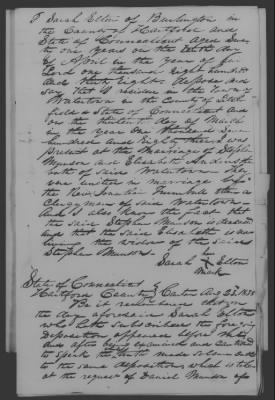 I Sarah Elton of Burlington in
the County of Hartford and
State of Connecticut aged seven
ty one years on the tenth day
of April in the year of our
Lord one thousand eight hundred
and thirty eight depose and
say that I resided in the Town of
Watertown in the County of Litch
field & State of Connecticut and
on the thirtieth day of March
in the year One thousand Seven
hundred and Eighty three I was
Present at the Marriage of Stephen
Munson and Elizabeth Andrus
both of said Watertown they
were united in marriage by
the Rev. Trumbull then a
Clergyman of said Watertown
And I also know the fact that
the said Stephen Munson is dead and
that the said Elizabeth is now
living the widow of the said
Stephen Munson
Sarah X Elton
Mark
State of Connecticut
Hartford County Aug 23 1838
Be it remembered that on
the day aforesaid Sarah Elton
who subscribed the foregoing
deposition appeared before me
and after being examined and cautioned
to speak the truth made solemn oath
to the same deposition which is taken
at the request of Daniel Munson of